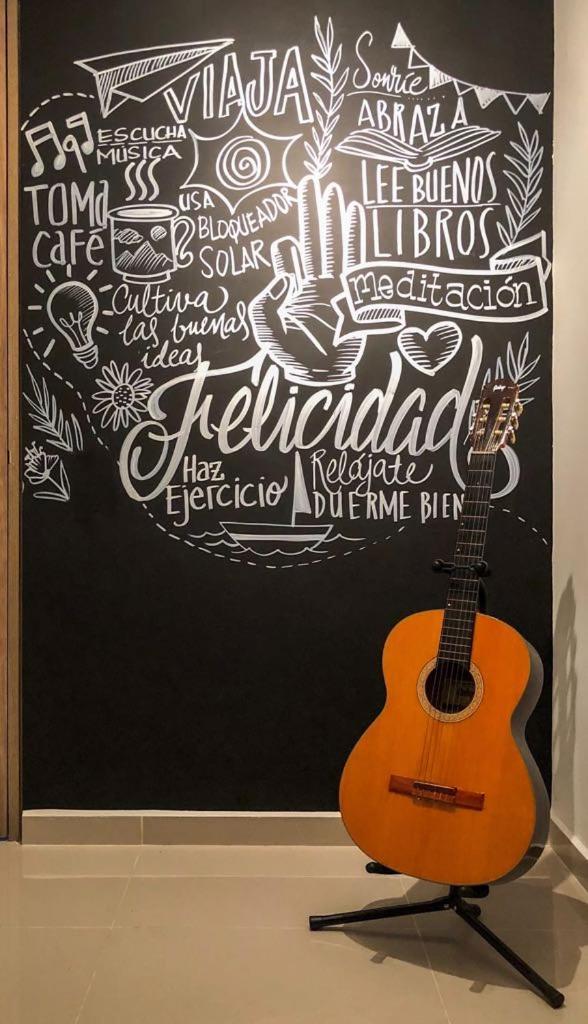 VIAJA
Sonríe
ABRAZA
ESCUCHA
MÚSICA
LEE BUENOS
LIBROS
TOMA
CAFÉ
USA
BLOQUEADOR
SOLAR
meditación
Cultiva
las buenas
ideas
Felicidad
Haz
Ejercicio
Relájate
DUERME BIEN